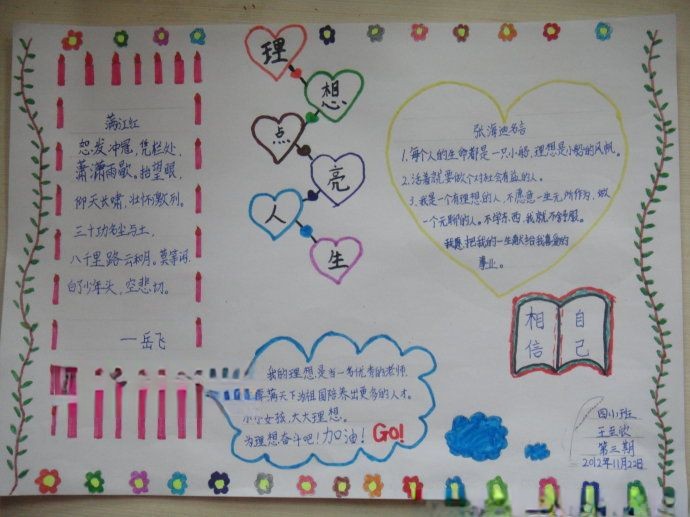 理
想
点
亮
人
生
满江红
怒发冲冠,凭栏处,
潇潇雨歇。抬望眼,
仰天长啸,壮怀激烈。
三十功名尘与土,
八千里路云和月。莫等闲,
白了少年头,空悲切。
一岳飞
张海迪名言
1.每个人的生命都是一只小船,理想是小船的风帆。
2.活着就要做个对社会有益的人。
3.我是一个有理想的人,不愿意一生无所作为,做
一个无聊的人。不学东西,我就不舒服。
我愿把我的一生献给我喜爱的
事业。
相信
自己
我的理想是当一名优秀的老师,
满天下为祖国培养出更多的人才。
小小女孩,大大理想。
为理想奋斗吧!加油!Go!
四小班
第三期
2012年11月22日